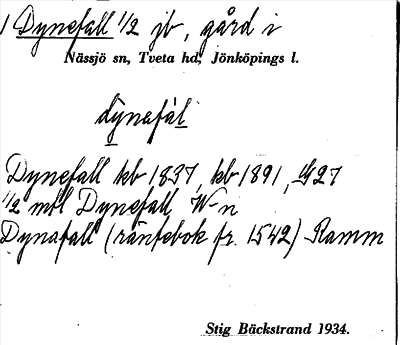 1 Dynefall 1/2 jb, gård i
Nässjö sn, Tveta hd, Jönköpings l.
dynefàl
Dynefall kb 1837, kb 1891, G27
1/2 mtl Dynefall W-n
Dynafall (räntebok fr. 1542) Ramm
Stig Bäckstrand 1934.